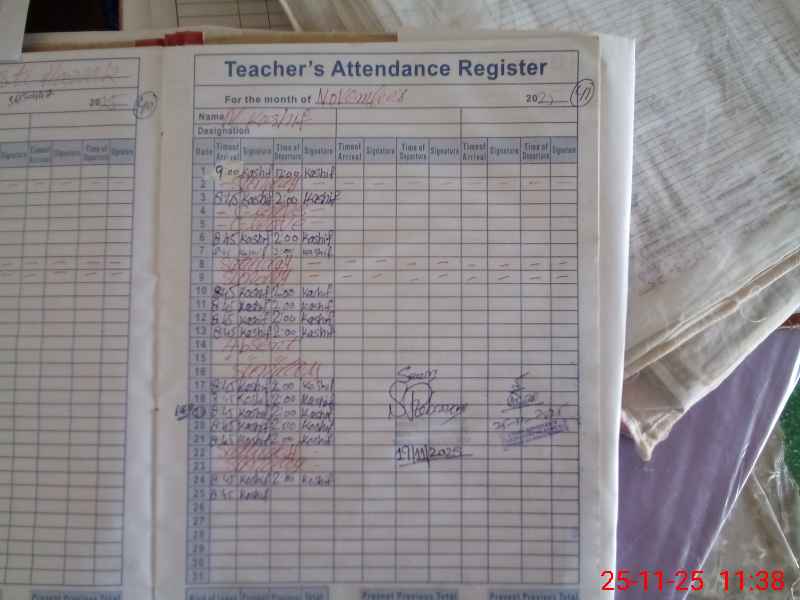 Teacher's Attendance Register
For the month of November 2025 41
Name Kashif
Designation
Date Time of Arrival Signature Time of Departure Signature Time of Arrival Signature Time of Departure Signature Time of Arrival Signature Time of Departure Signature
1 9.00 Kashif 12.00 Kashif
2 Sunday
3 8.45 Kashif 2.00 Kashif
4
5
6 8.45 Kashif 2.00 Kashif
7 Kashif 2.00 Kashif
8
9 Sunday
10 8.45 Kashif 2.00 Kashif
11 8.45 Kashif 2.00 Kashif
12 8.45 Kashif 2.00 Kashif
13 8.45 Kashif 2.00 Kashif
14 Absent
15
16 Sunday
17 8.45 Kashif 2.00 Kashif
18 8.45 Kashif 2.00 Kashif
8.45 Kashif 2.00 Kashif
20 8.45 Kashif 2.00 Kashif
21 8.45 Kashif 2.00 Kashif
22
23 Sunday
24 8.45 Kashif 2.00 Kashif
25 8.45 Kashif
26
27
28
29
30
31
Seen
19/11/2025
25-11-2025
Present Previous Total
Present Previous Total
Present Previous Total
2025 40
Signature Time of Arrival Signature Time of Departure Signature
25-11-25 11:38